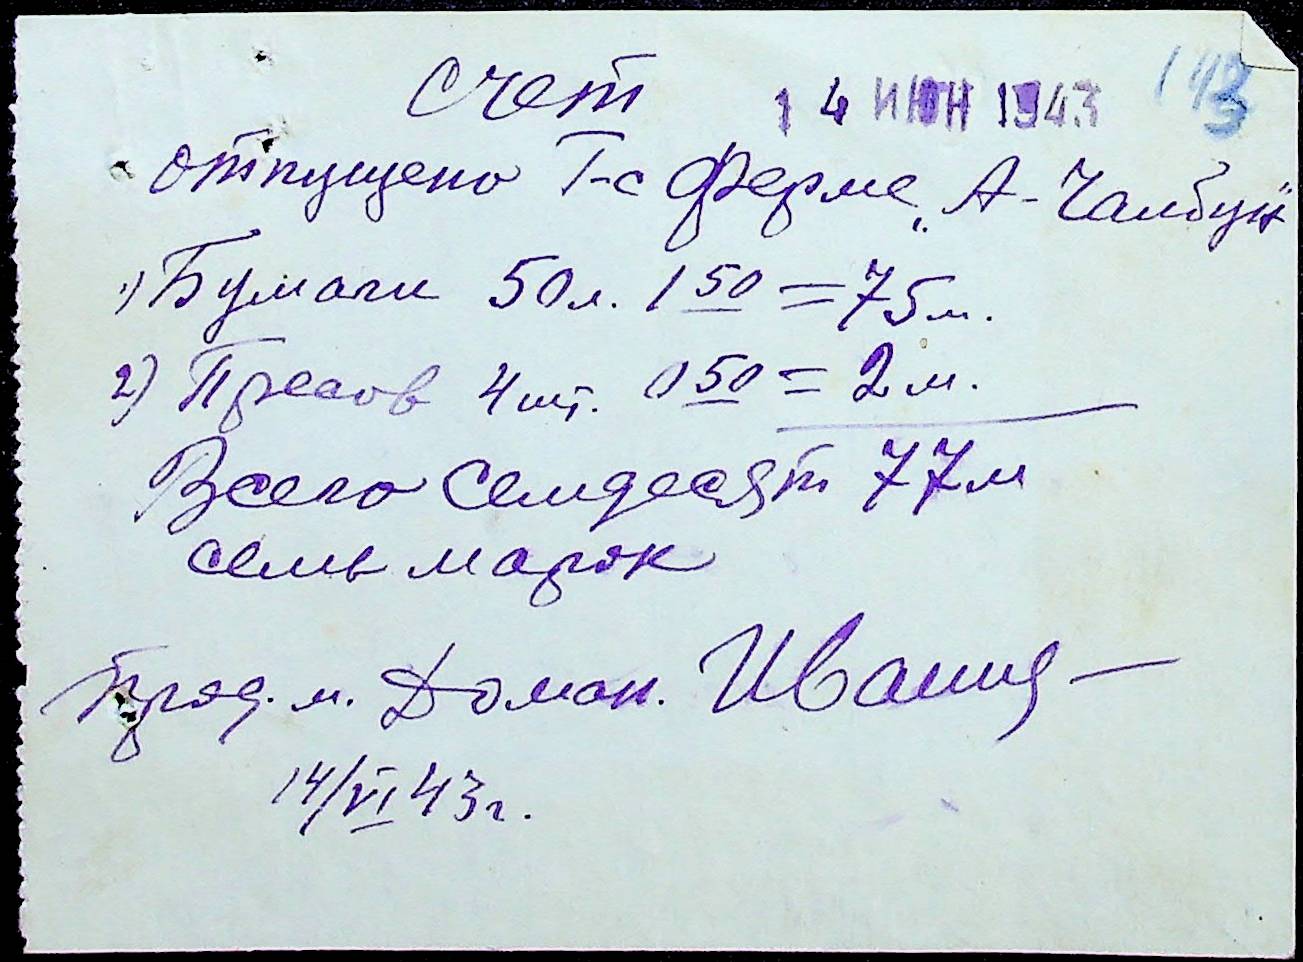 Счет
14 ИЮН 1943
отпущено Т-с Ферме „А-Чалбун"
1) Бумаги 50 л. 1 50 = 75 м.
2) 4 шт. 0 50 = 2 м.
Всего семдесят 77 м
семь марок
м. Доман.
14/VI 43 г.